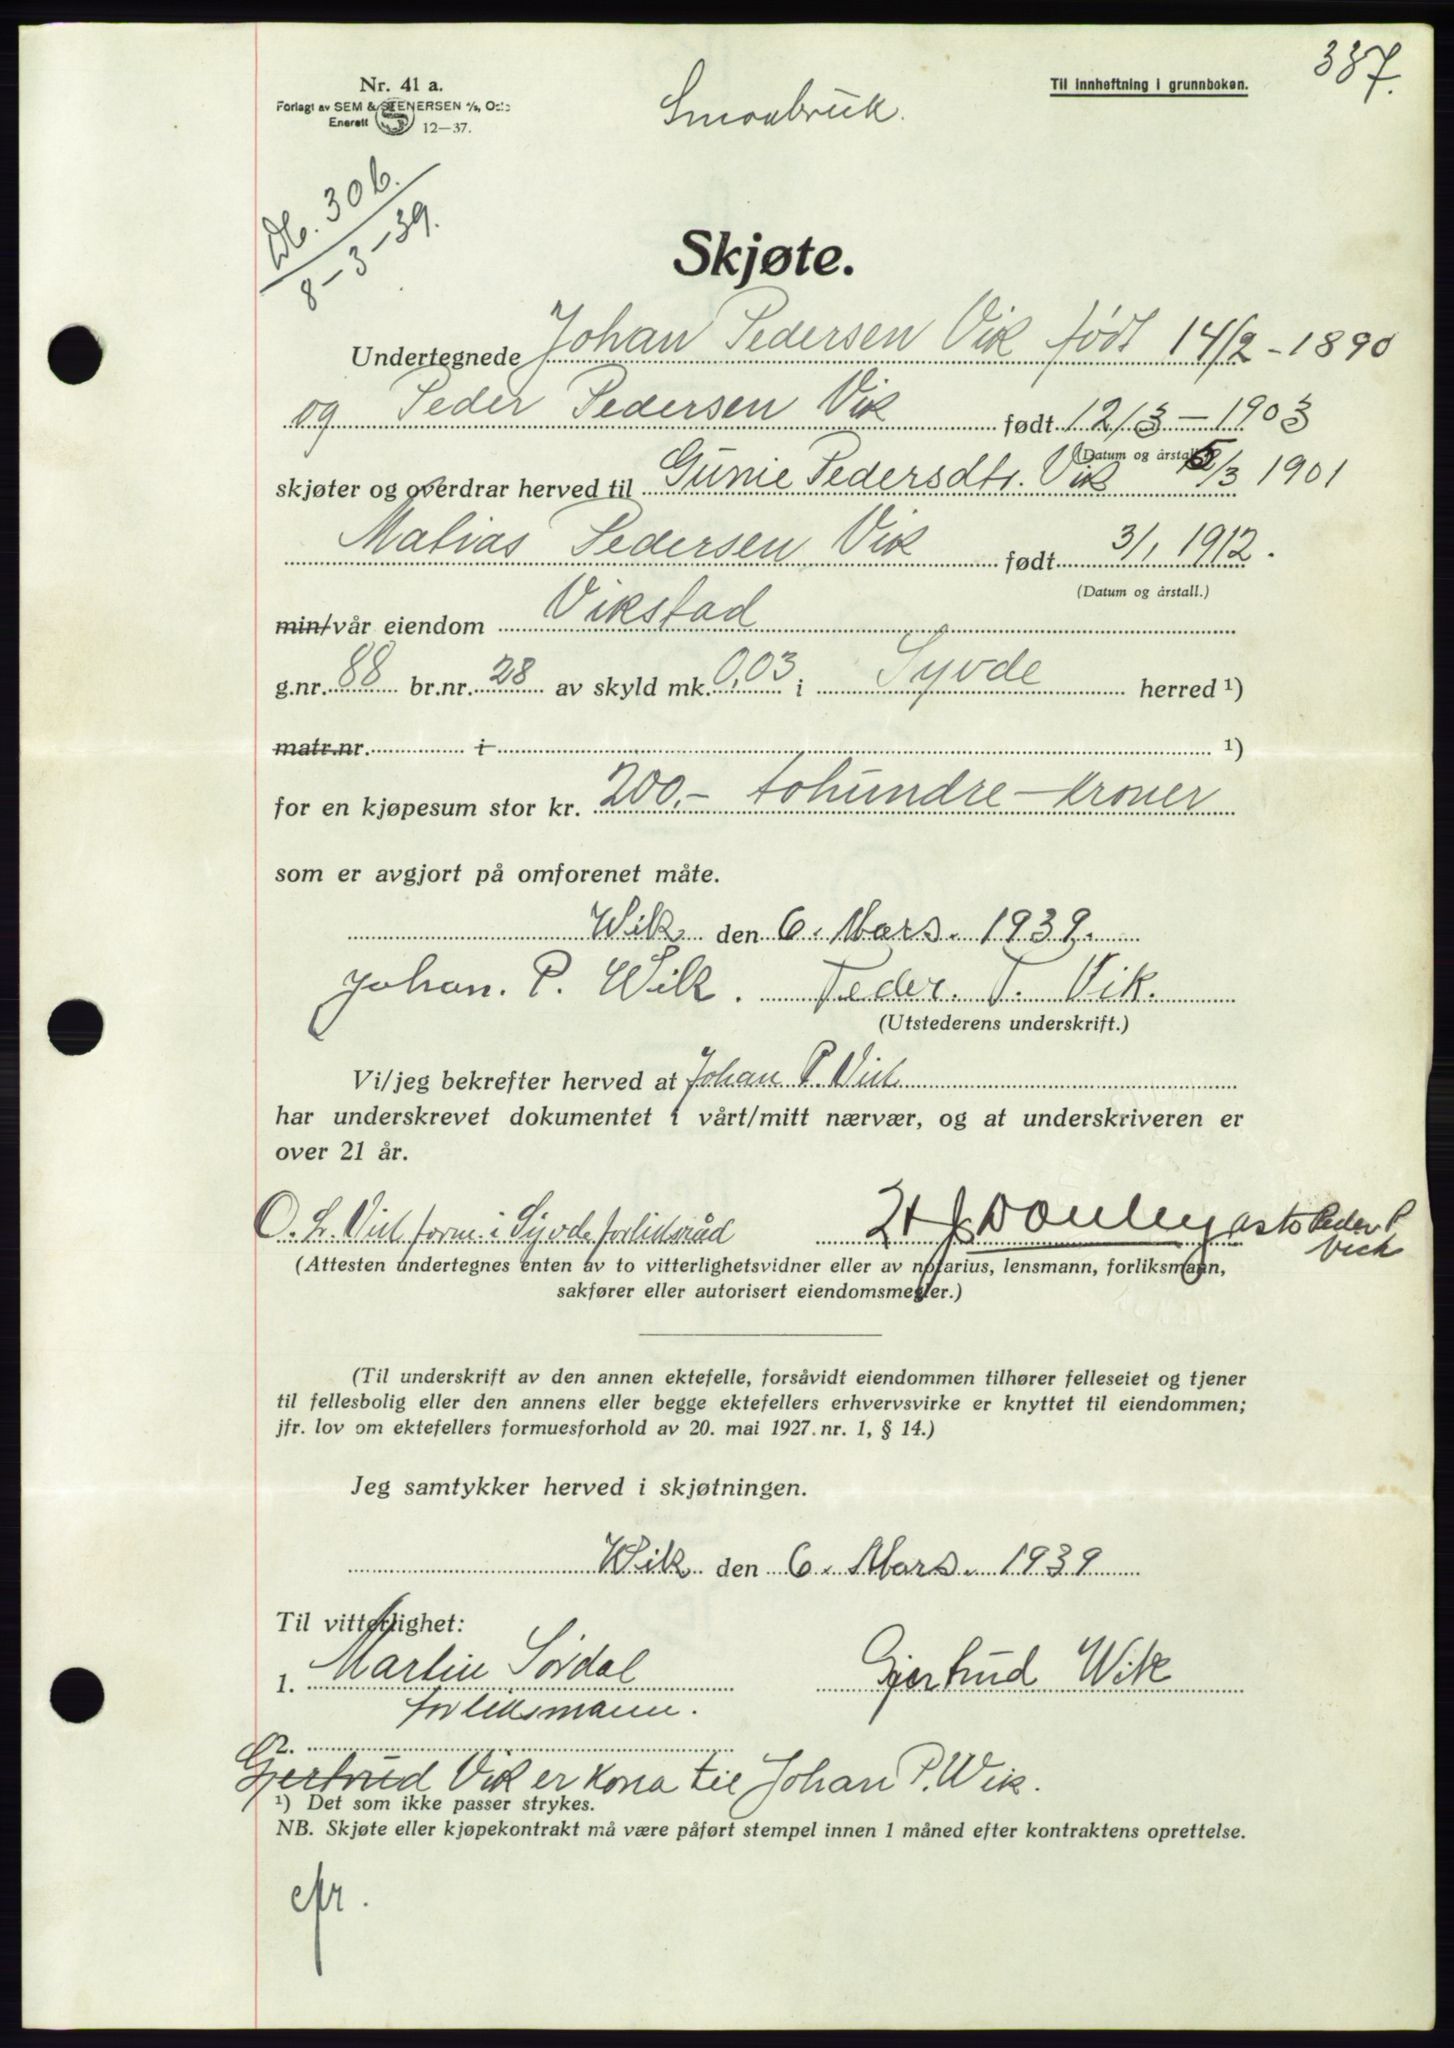 337.
Nr. 41 a.
Forlagt av SEM & STENERSEN A/S, Oslo
Enerett
12—37.
Til innheftning i grunnboken.
Smaabruk.
Db. 306.
8-3-39.
Skjøte.
Undertegnede Johan Pedersen Vik født 14/2-1890
og Peder Pedersen Vik født 12/3-1903
(Datum og årstall.)
skjøter og overdrar herved til Gunie Pedersdtr. Vik 5/3 1901
Matias Pedersen Vik født 3/1 1912.
(Datum og årstall.)
min/vår eiendom Vikstad
g.nr. 88 br.nr. 28 av skyld mk. 0,03 i Syvde herred ¹)
matr.nr. i ¹)
for en kjøpesum stor kr. 200.- tohundre-kroner
som er avgjort på omforenet måte.
Wik den 6. Mars. 1939.
Johan. P. Wik. Peder. P. Vik.
(Utstederens underskrift.)
Vi/jeg bekrefter herved at Johan P. Vik
har underskrevet dokumentet i vårt/mitt nærvær, og at underskriveren er
over 21 år.
O. L. Vik form. i Syvde forliksråd
Peder P.
Vik
(Attesten undertegnes enten av to vitterlighetsvidner eller av notarius, lensmann, forliksmann,
sakfører eller autorisert eiendomsmegler.)
(Til underskrift av den annen ektefelle, forsåvidt eiendommen tilhører felleseiet og tjener
til fellesbolig eller den annens eller begge ektefellers erhvervsvirke er knyttet til eiendommen;
jfr. lov om ektefellers formuesforhold av 20. mai 1927. nr. 1, § 14.)
Jeg samtykker herved i skjøtningen.
Wik den 6. Mars. 1939
Til vitterlighet:
1. Martin Sørdal Gjertrud Wik
forliksmann.
2.
Gjertrud Vik er kona til Johan P. Wik.
¹) Det som ikke passer strykes.
NB. Skjøte eller kjøpekontrakt må være påført stempel innen 1 måned efter kontraktens oprettelse.